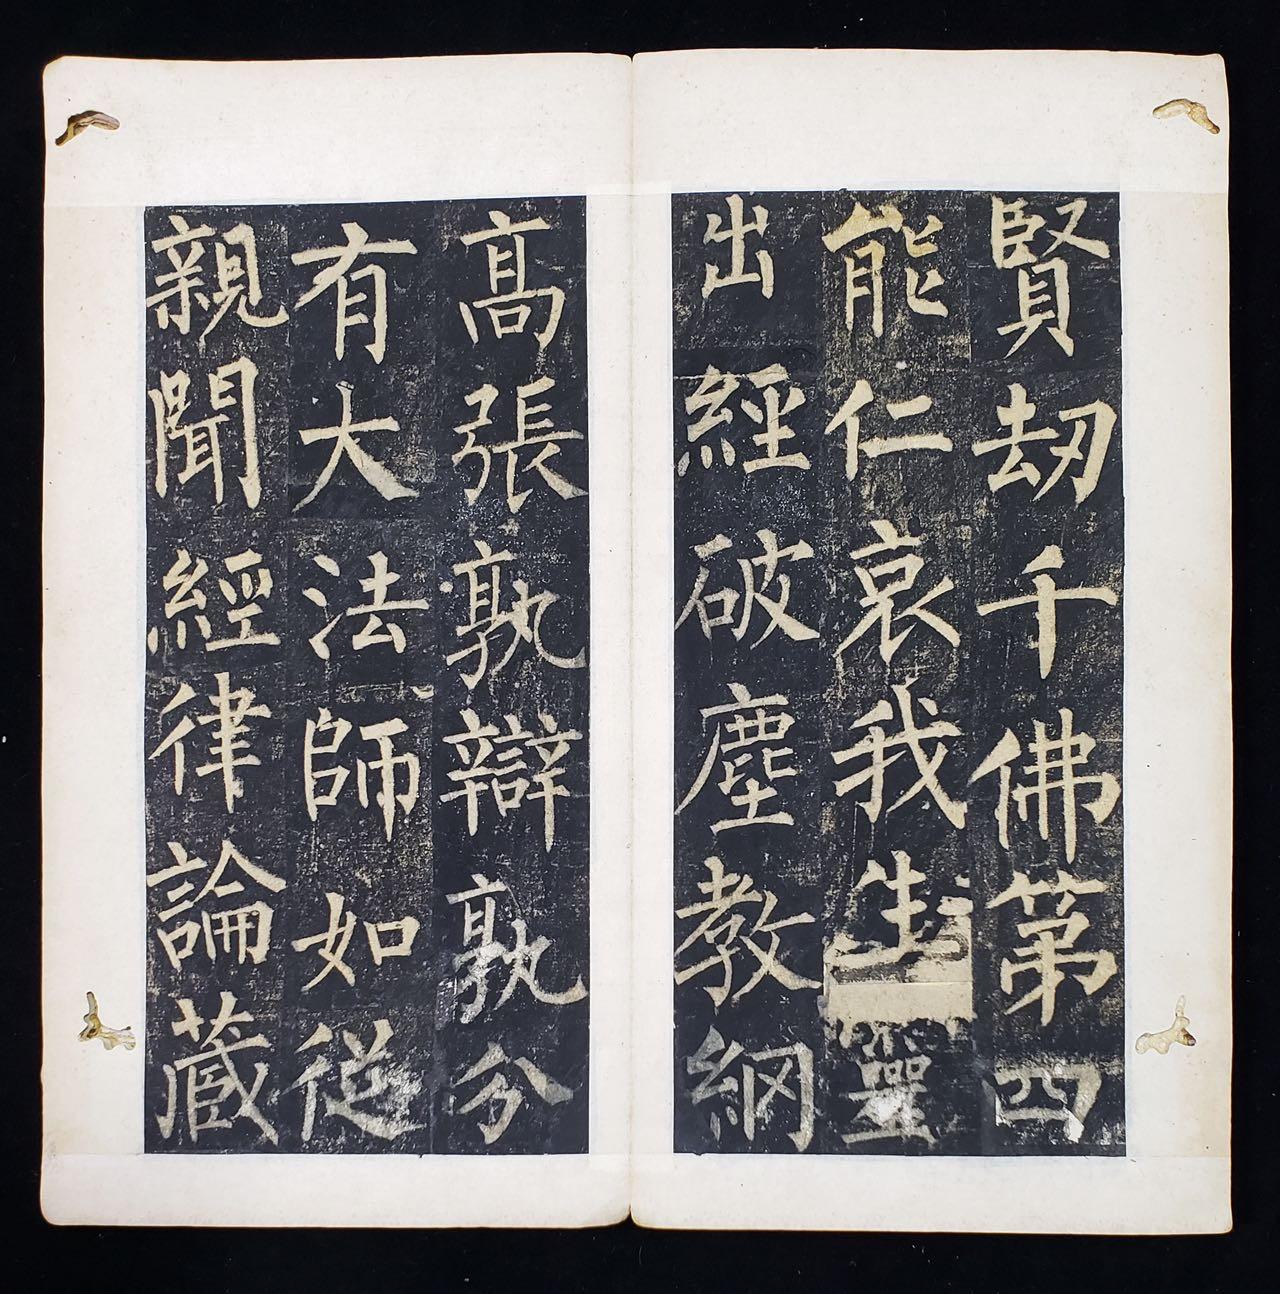 賢劫千佛第四
能仁哀我生靈
出經破塵教網
高張孰辯孰分
有大法師如從
親聞經律論藏